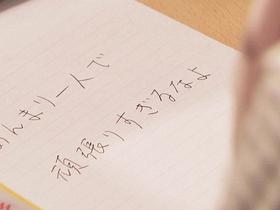 あんまり一人で
頑張りすぎるなよ